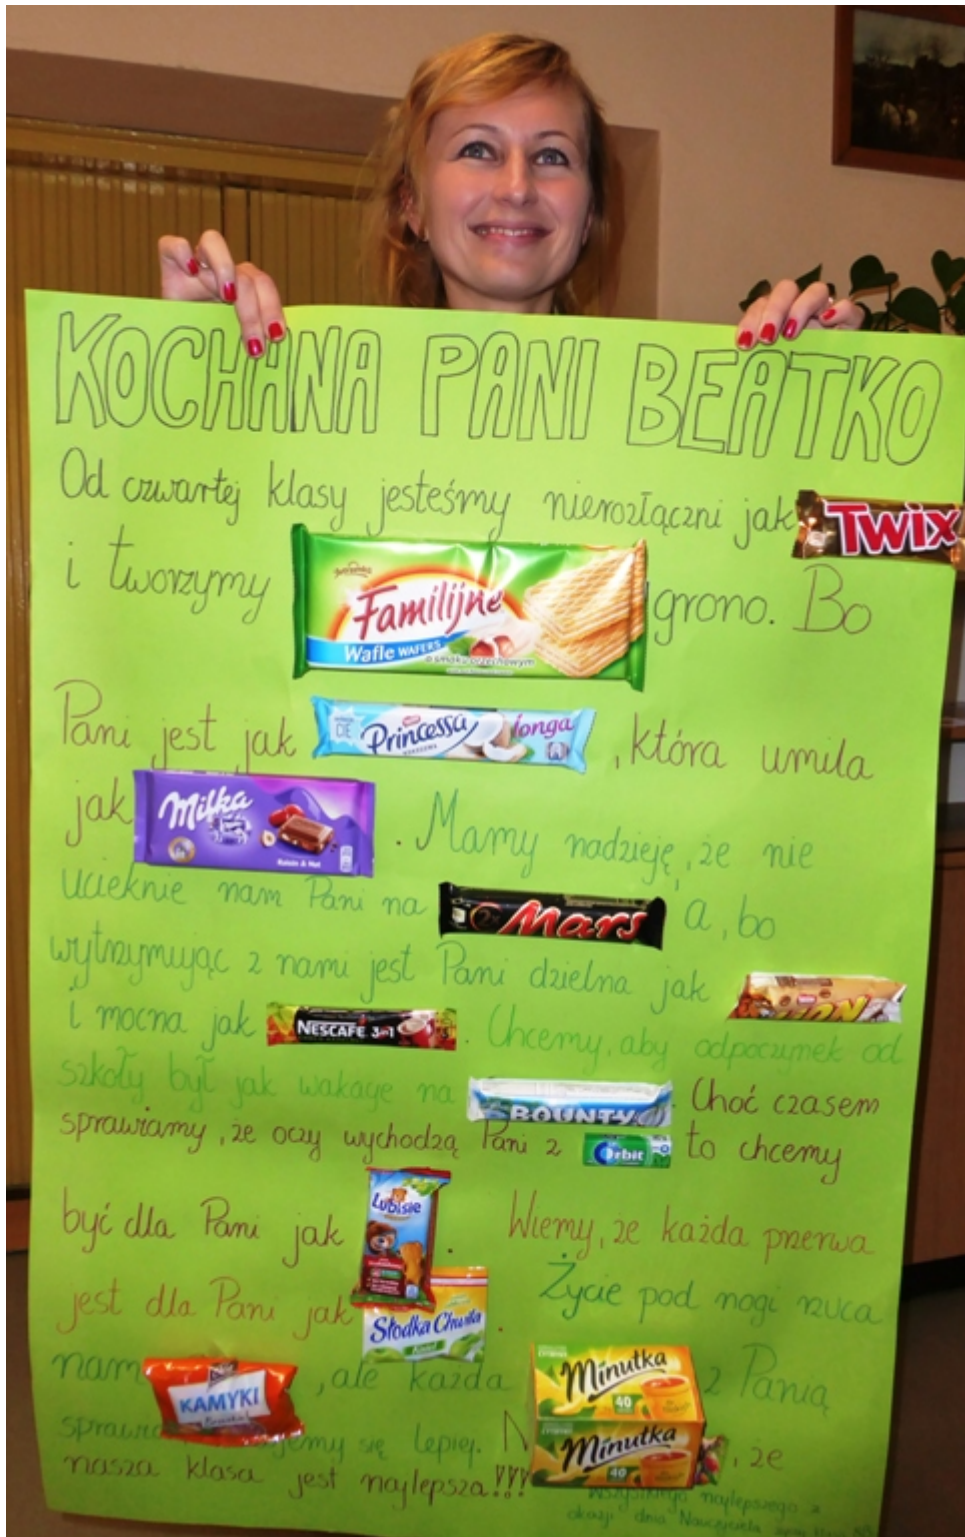 KOCHANA PANI BEATKO
Od czwartej klasy jesteśmy nierozłączni jak TWIX
i tworzymy Familijne Wafle WAFERS o smaku orzechowym grono. Bo
Pani jest jak Princessa longa, która umila
jak Milka Raisin & Nut. Mamy nadzieję, że nie
ucieknie nam Pani na Mars'a, bo
wytrzymując z nami jest Pani dzielna jak LION
i mocna jak NESCAFÉ 3in1. Chcemy, aby odpoczynek od
szkoły był jak wakacje na BOUNTY. Choć czasem
sprawiamy, że oczy wychodzą Pani z Orbit to chcemy
być dla Pani jak Lubisie. Wiemy, że każda przerwa
jest dla Pani jak Słodka Chwila. Życie pod nogi rzuca
nam KAMYKI, ale każda Minutka 40 z Panią
jemy się lepiej. Minutka 40, że
nasza klasa jest najlepsza!!!
Wszystkiego najlepszego z
okazji dnia Nauczyciela